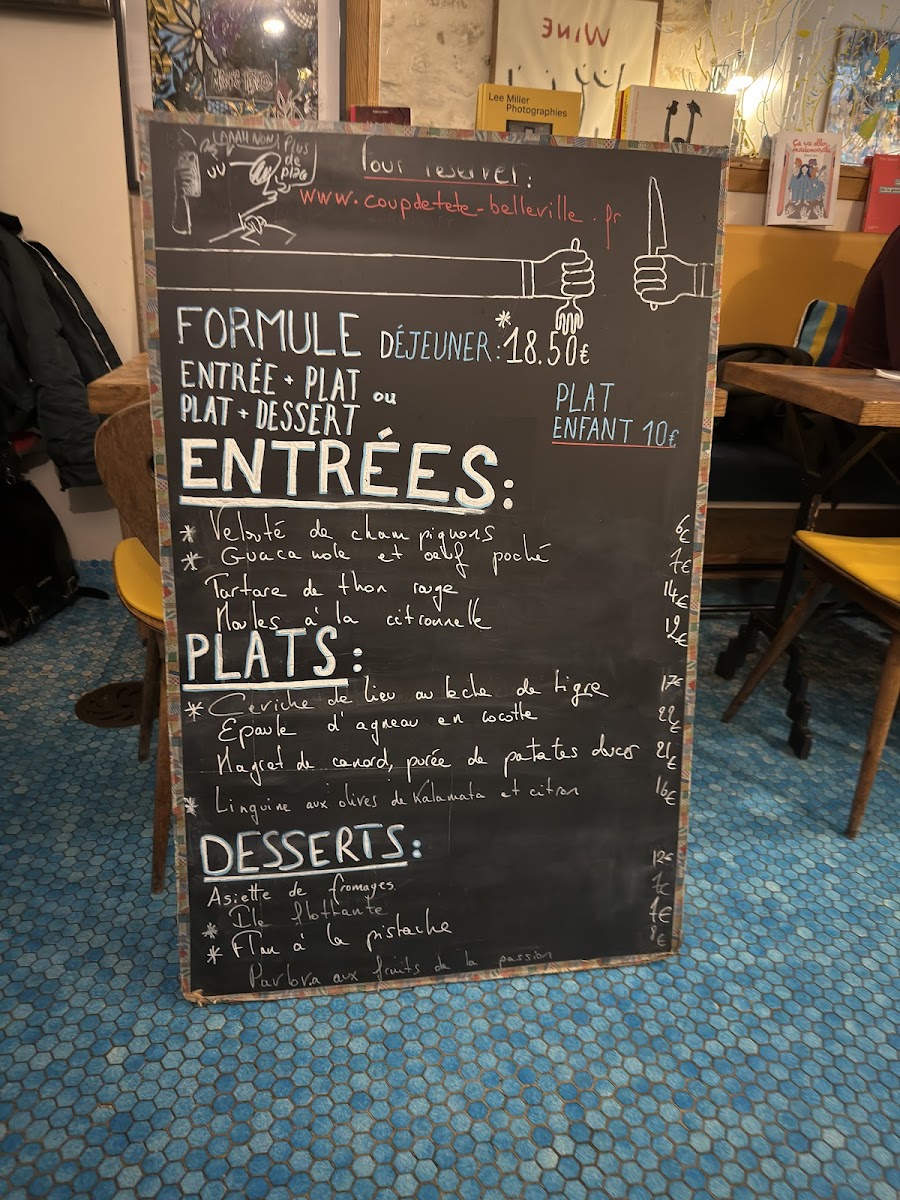 WINE
Lee Miller
Photographies
Ça va aller
mademoiselle
LAAAH NON!
PLUS
DE
PLACE
Pour reserver :
www.coupdetete-belleville.fr
FORMULE DÉJEUNER : *18.50€
ENTRÉE + PLAT ou
PLAT + DESSERT
PLAT
ENFANT 10€
ENTRÉES :
* Velouté de champignons 6€
* Guacamole et œuf poché 7€
Tartare de thon rouge 14€
Moules à la citronnelle 12€
PLATS :
* Céviche de lieu au leche de tigre 17€
Epaule d'agneau en cocotte 22€
Magret de canard, purée de patates douces 21€
* Linguine aux olives de Kalamata et citron 16€
DESSERTS :
Asiette de fromages 12€
* Ile flottante 7€
* Flan à la pistache 7€
Pavlova aux fruits de la passion 8€